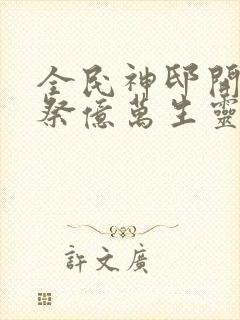 全民神邸開
祭億萬生靈
許文廣